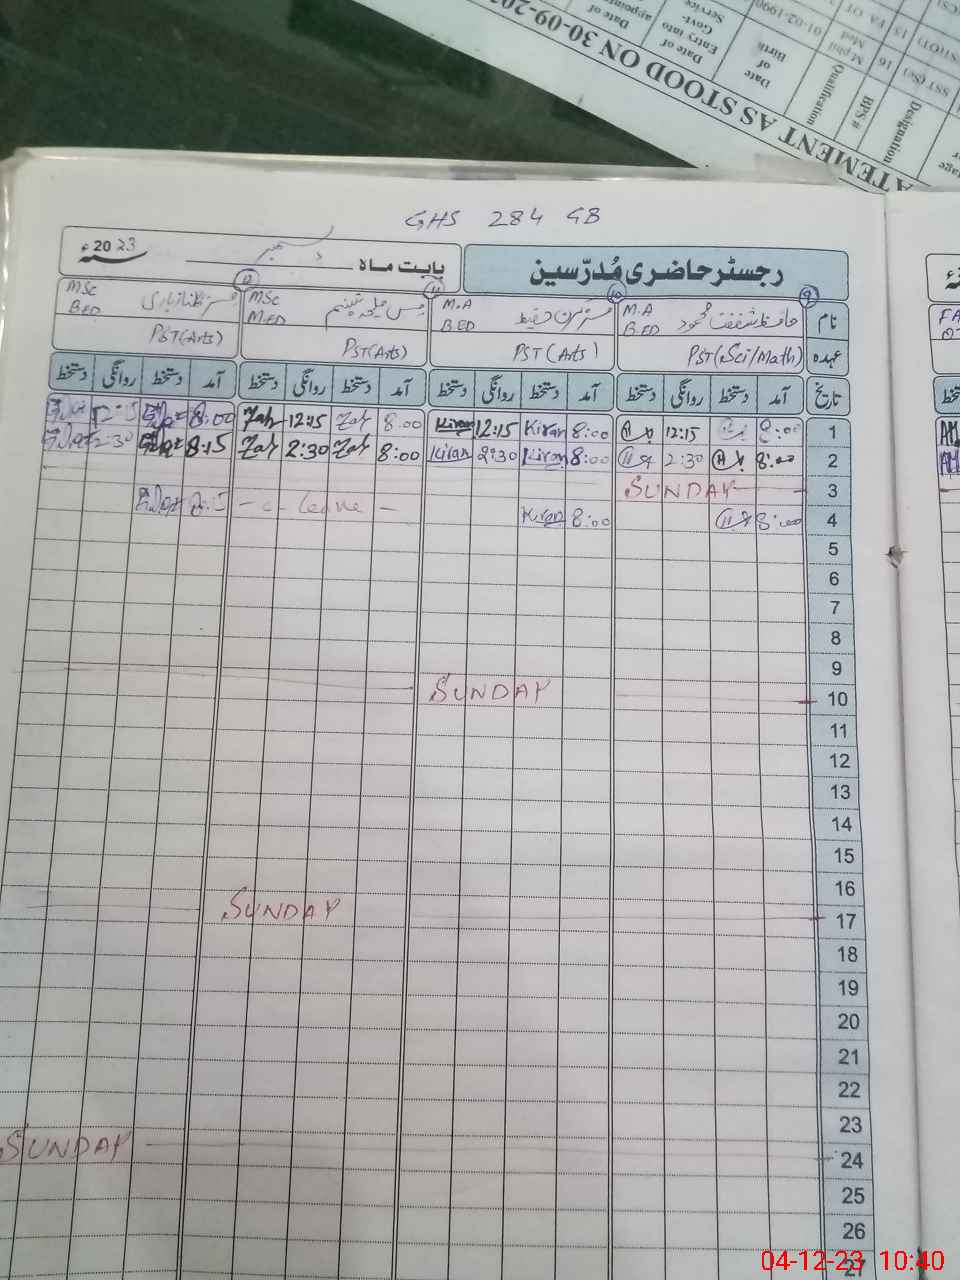 ATEMENT AS STOOD ON 30-09-20
Designation
BPS #
Qualification
Date of Birth
Date of Entry into Govt. Service
Date of
SST (Sc)
16
M.phil Med
01-02-1990
15
GHS 284 GB
رجسٹر حاضری مُدرّسین
بابت ماہ دسمبر سنہ 2023ء
نام
9
M.A
B.ED
10
M.A
B.ED
11
MSC
M.ED
12
MSc
B.ED
عہدہ
PST (Sci/Math)
PST (Arts)
PST(Arts)
PST(Arts)
تاریخ
آمد دستخط روانگی دستخط آمد دستخط روانگی دستخط آمد دستخط روانگی دستخط آمد دستخط روانگی دستخط
1 8:00 12:15 8:00 Kiran 12:15 Kiran 8:00 Zah 12:15 Zah 8:00 12:15
2 8:00 2:30 8:00 Kiran 2:30 Kiran 8:00 Zah 2:30 Zah 8:15 2:30
3 SUNDAY
4 8:00 8:00 Kiran - c- leave - 8:15
5
6
7
8
9
10 SUNDAY
11
12
13
14
15
16
17 SUNDAY
18
19
20
21
22
23
24 SUNDAY
25
26
27
04-12-23 10:40